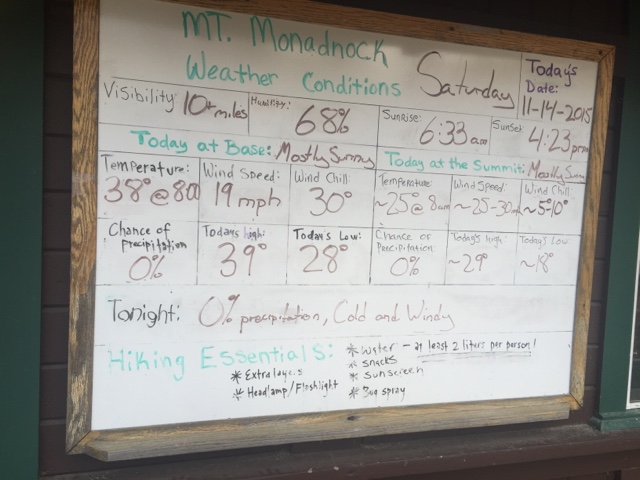 MT. Monadnock
Weather Conditions
Saturday
Today's
Date:
11-14-2015
Visibility: 10+ miles
Humidity: 68%
Sunrise: 6:33 am
Sunset: 4:23 pm
Today at Base: Mostly Sunny
Today at the Summit: Mostly Sunny
Temperature: 38° @ 800
Wind Speed: 19 mph
Wind Chill: 30°
Temperature: ~25° @ 8am
Wind Speed: ~25-30
Wind Chill: ~5-10°
Chance of precipitation 0%
Today's high: 39°
Today's Low: 28°
Chance of Precipitation 0%
Today's high: ~29°
Today's Low ~18°
Tonight: 0% precipitation, Cold and Windy
Hiking Essentials:
* Extra layers
* Headlamp/Flashlight
* Water - at least 2 liters per person!
* Snacks
* Sunscreen
* Bug spray